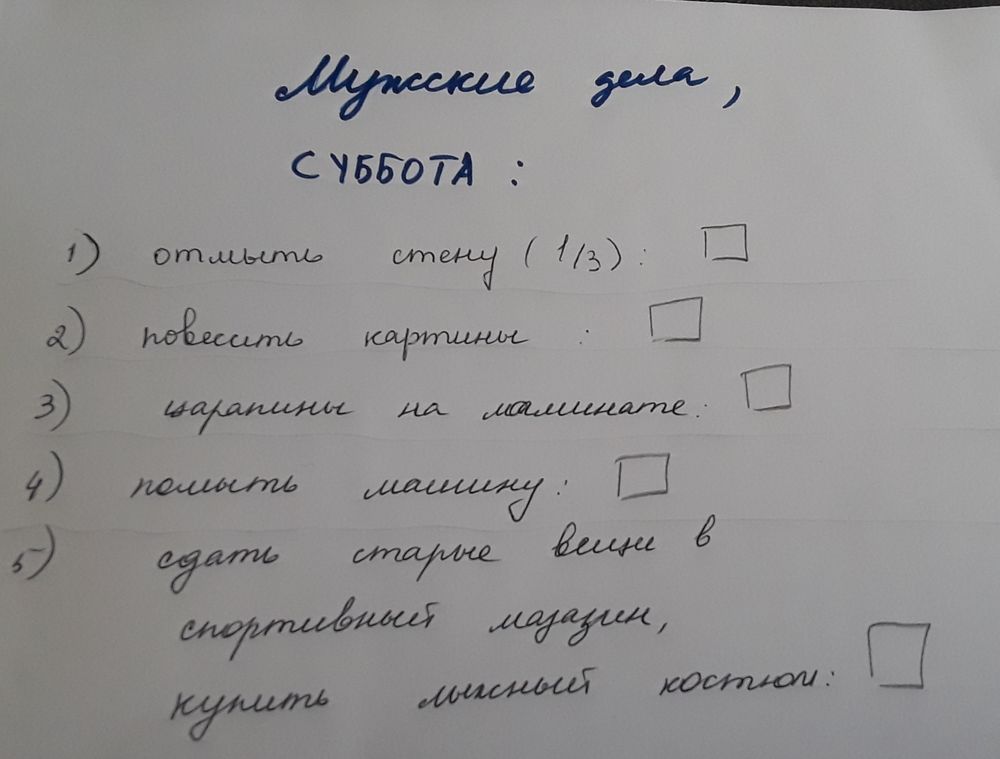 Мужские дела,
СУББОТА :
1) отмыть стену (1/3) :
2) повесить картины :
3) царапины на ламинате :
4) помыть машину :
5) сдать старые вещи в
спортивный магазин,
купить лыжный костюм :